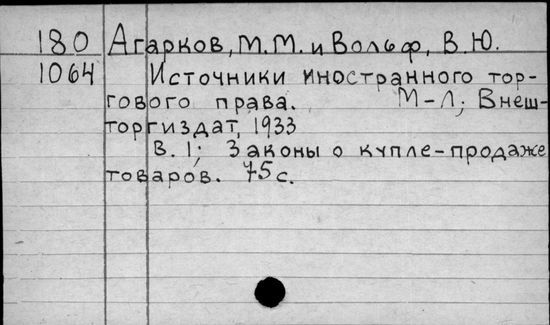 180 Агарков, М.М. и Вольф, В.Ю.
1064 Источники иностранного тор-
гового права. М-Л; Внеш-
торгиздат, 1933
В. I; Законы о купле-продаже
товаров. 75 с.